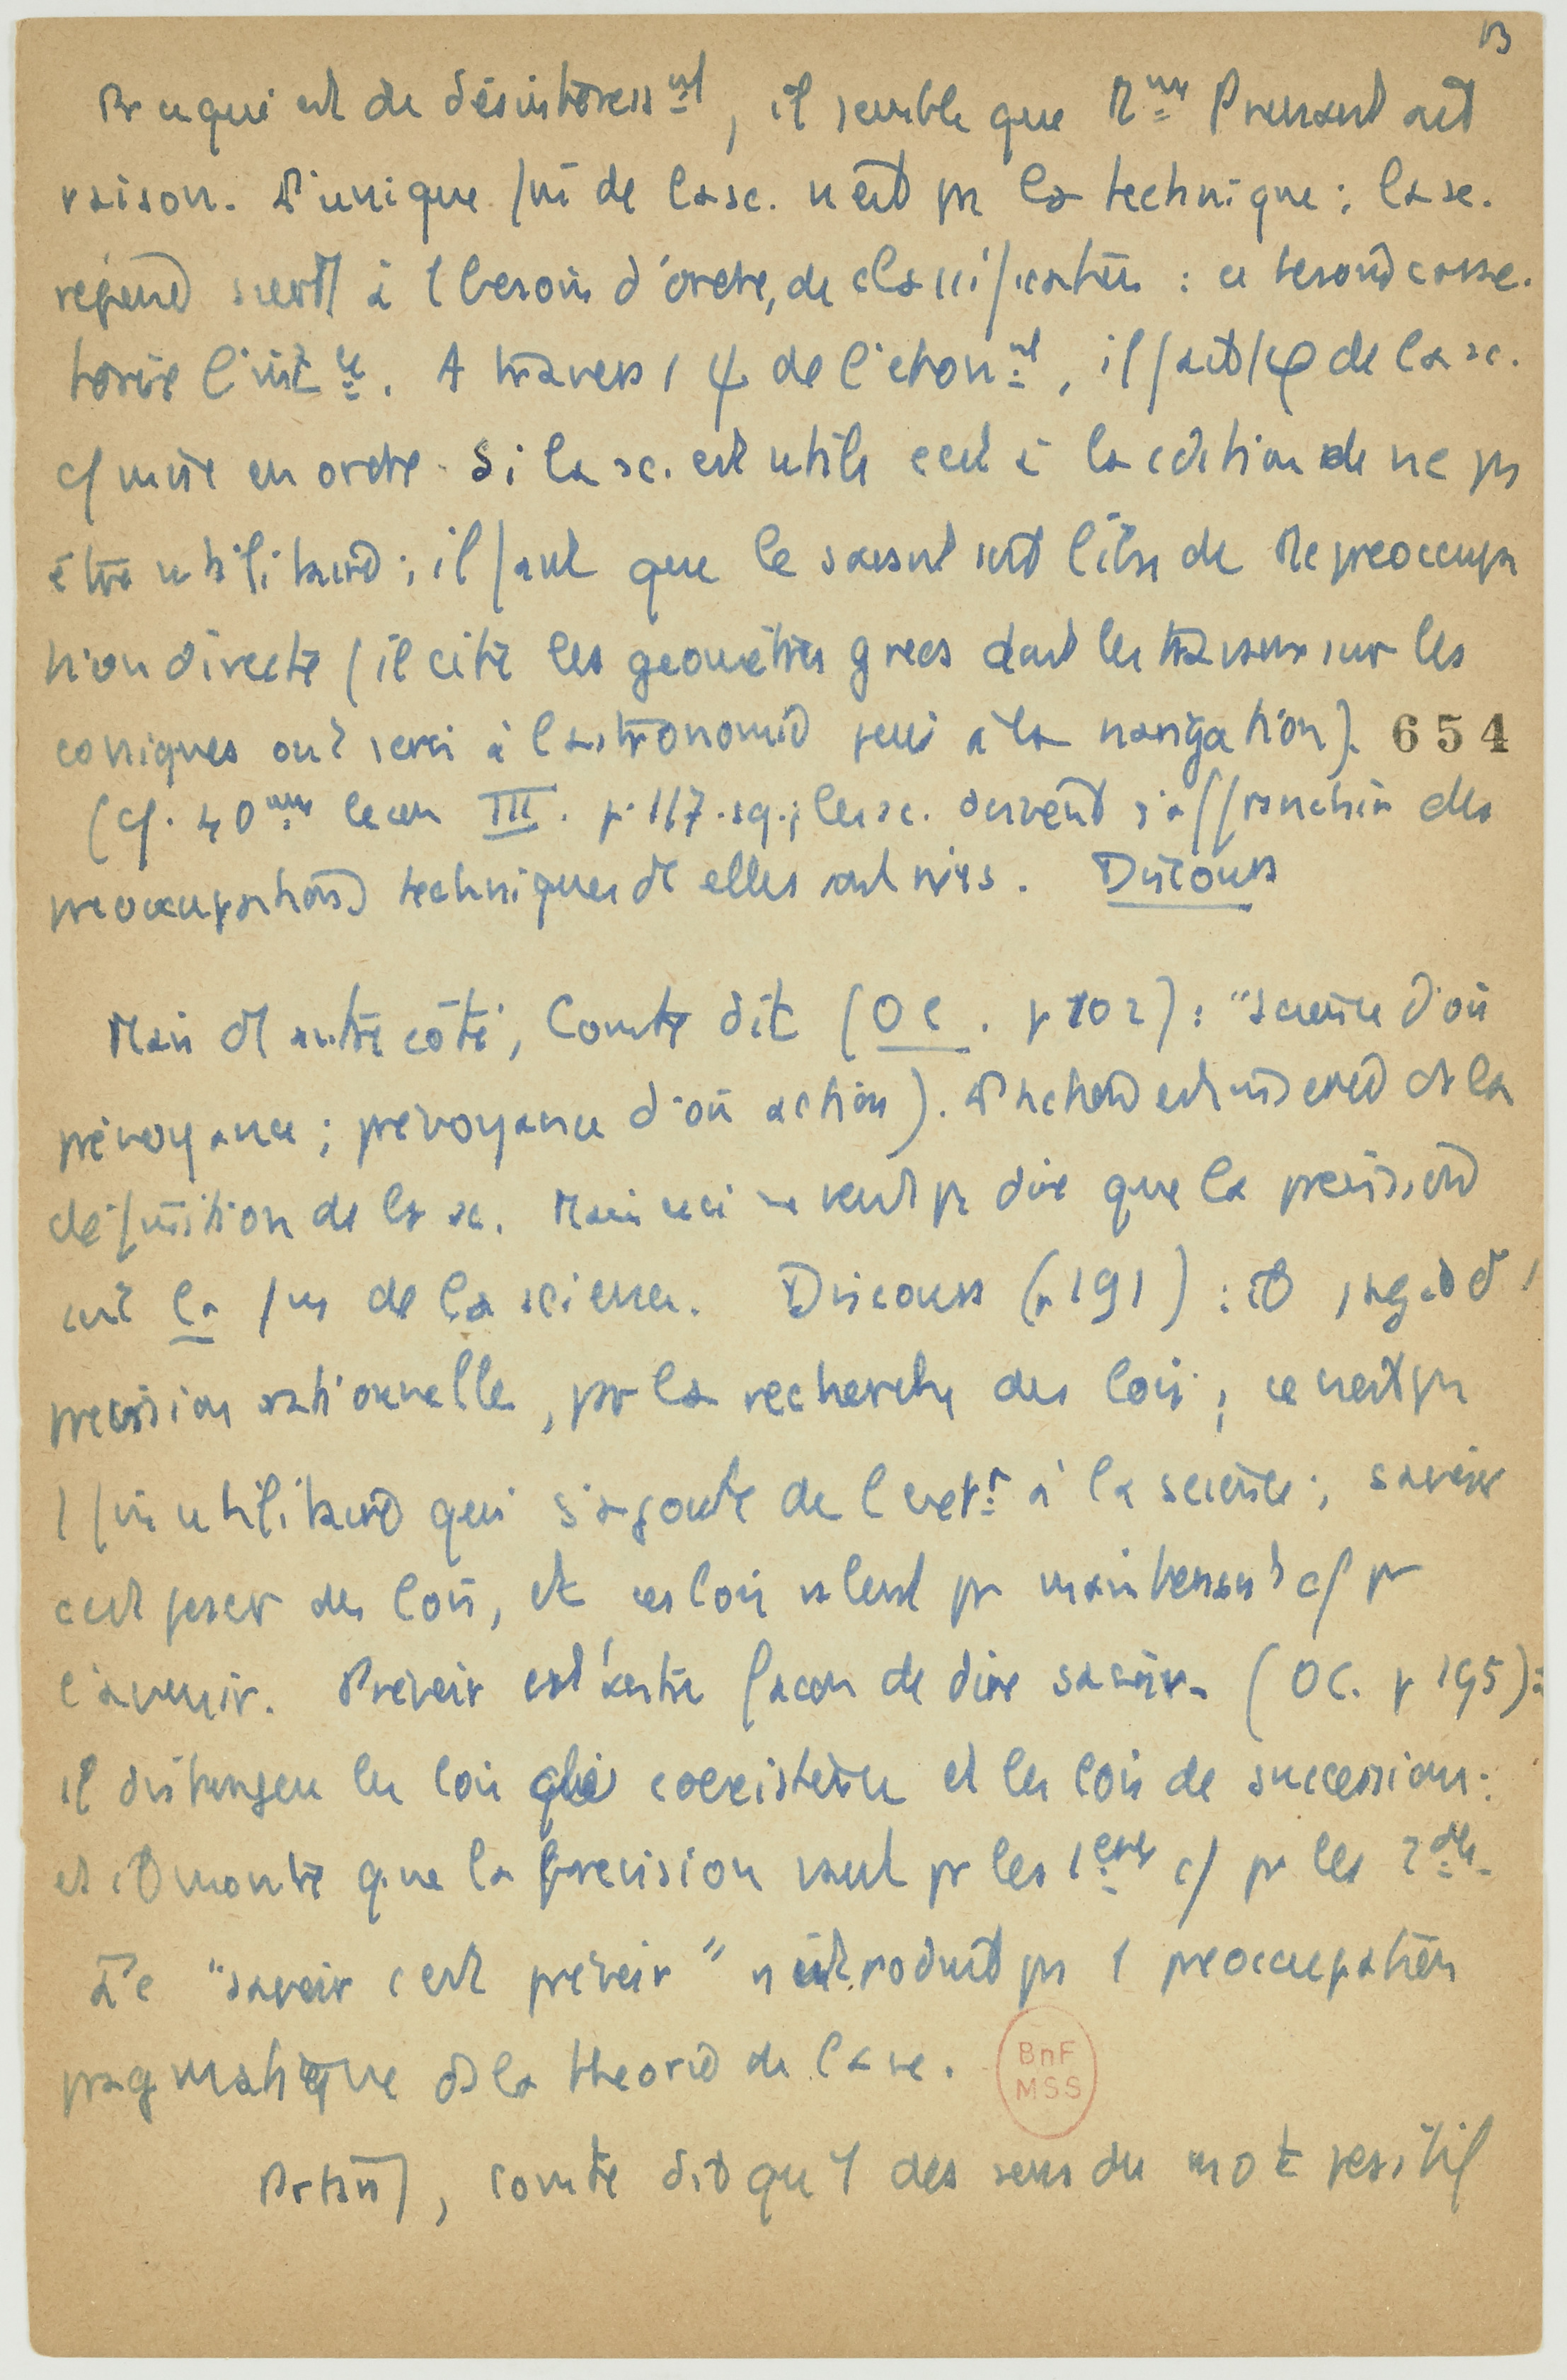 13
Pr ce qui est du désintéress^nt, il semble que M^me Prenant ait
raison. L'unique fin de la sc. n'est pr la technique ; la sc.
répond à 1 besoin d'ordre, de classification : ce besoin
A travers 1 ψ de l'étonn^nt, il fait 1 φ de la sc.
cf mise en ordre. Si la sc. est utile c'est à la cdition de ne ps
être utilitaire ; il faut que le savant soit libre de tte préoccupa
tion directe (il cite les géomètres grecs dont les travaux sur les
coniques ont servi à l'astronomie puis à la navigation). 654
(cf. 40^ème leçon III. p. 117. sq. ; les sc. doivent s'affranchir des
préoccupations techniques dt elles sont nées. Discours
Mais d'1 autre côté, Comte dit (OC. p 102) : "science d'où
prévoyance ; prévoyance d'où action). L'action est ds la
définition de la sc. Mais ceci ne veut ps dire que la prévision
soit la fin de la science. Discours (p 191) : il s'agit d'1
prévision rationnelle, par la recherche des lois ; ce n'est ps
1 fin utilitaire qui s'ajoute de l'ext^r à la science ; savoir
c'est poser des lois, et ces lois valent pr maintenant cf pr
l'avenir. Prévoir est 1 autre façon de dire savoir. (OC. p 195) :
il distingue les lois de coexistence et les lois de succession :
et il montre que la prévision vaut pr les 1^ères cf pr les 2^des.
Le "savoir c'est prévoir" n'introduit ps 1 préoccupation
pragmatique ds la théorie de la sc.
BnF
MSS
Partant, Comte dit qu'1 des sens du mot positif